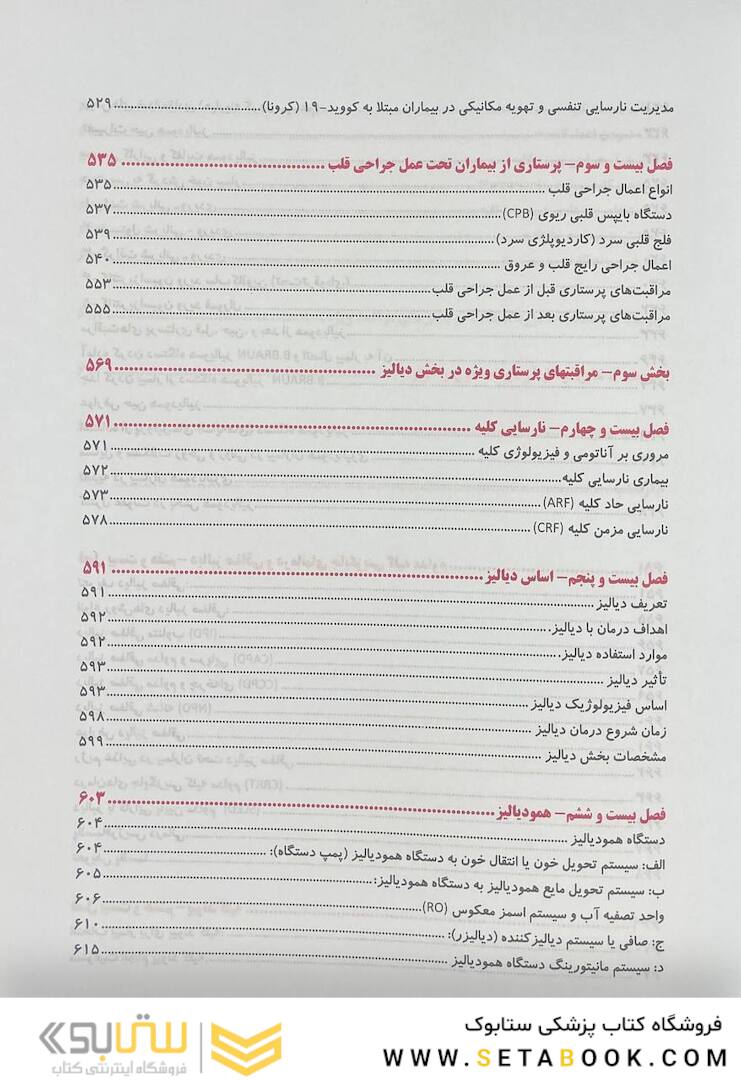 مدیریت نارسایی تنفسی و تهویه مکانیکی در بیماران مبتلا به کووید-۱۹ (کرونا)..........۵۲۹
فصل بیست و سوم- پرستاری از بیماران تحت عمل جراحی قلب..........۵۳۵
انواع اعمال جراحی قلب..........۵۳۵
دستگاه بایپس قلبی ریوی (CPB)..........۵۳۷
فلج قلبی سرد (کاردیوپلژی سرد)..........۵۳۹
اعمال جراحی رایج قلب و عروق..........۵۴۰
مراقبت‌های پرستاری قبل از عمل جراحی قلب..........۵۵۳
مراقبت‌های پرستاری بعد از عمل جراحی قلب..........۵۵۵
بخش سوم- مراقبتهای پرستاری ویژه در بخش دیالیز..........۵۶۹
فصل بیست و چهارم- نارسایی کلیه..........۵۷۱
مروری بر آناتومی و فیزیولوژی کلیه..........۵۷۱
بیماری نارسایی کلیه..........۵۷۲
نارسایی حاد کلیه (ARF)..........۵۷۳
نارسایی مزمن کلیه (CRF)..........۵۷۸
فصل بیست و پنجم- اساس دیالیز..........۵۹۱
تعریف دیالیز..........۵۹۱
اهداف درمان با دیالیز..........۵۹۲
موارد استفاده دیالیز..........۵۹۲
تأثیر دیالیز..........۵۹۳
اساس فیزیولوژیک دیالیز..........۵۹۳
زمان شروع درمان دیالیز..........۵۹۸
مشخصات بخش دیالیز..........۵۹۹
فصل بیست و ششم- همودیالیز..........۶۰۳
دستگاه همودیالیز..........۶۰۴
الف: سیستم تحویل خون یا انتقال خون به دستگاه همودیالیز (پمپ دستگاه):..........۶۰۴
ب: سیستم تحویل مایع همودیالیز به دستگاه همودیالیز:..........۶۰۵
واحد تصفیه آب و سیستم اسمز معکوس (RO)..........۶۰۶
ج: صافی یا سیستم دیالیزکننده (دیالیزر):..........۶۱۰
د: سیستم مانیتورینگ دستگاه همودیالیز..........۶۱۵
فروشگاه کتاب پزشکی ستابوک
WWW.SETABOOK.COM
ستابوک
فروشگاه اینترنتی کتاب